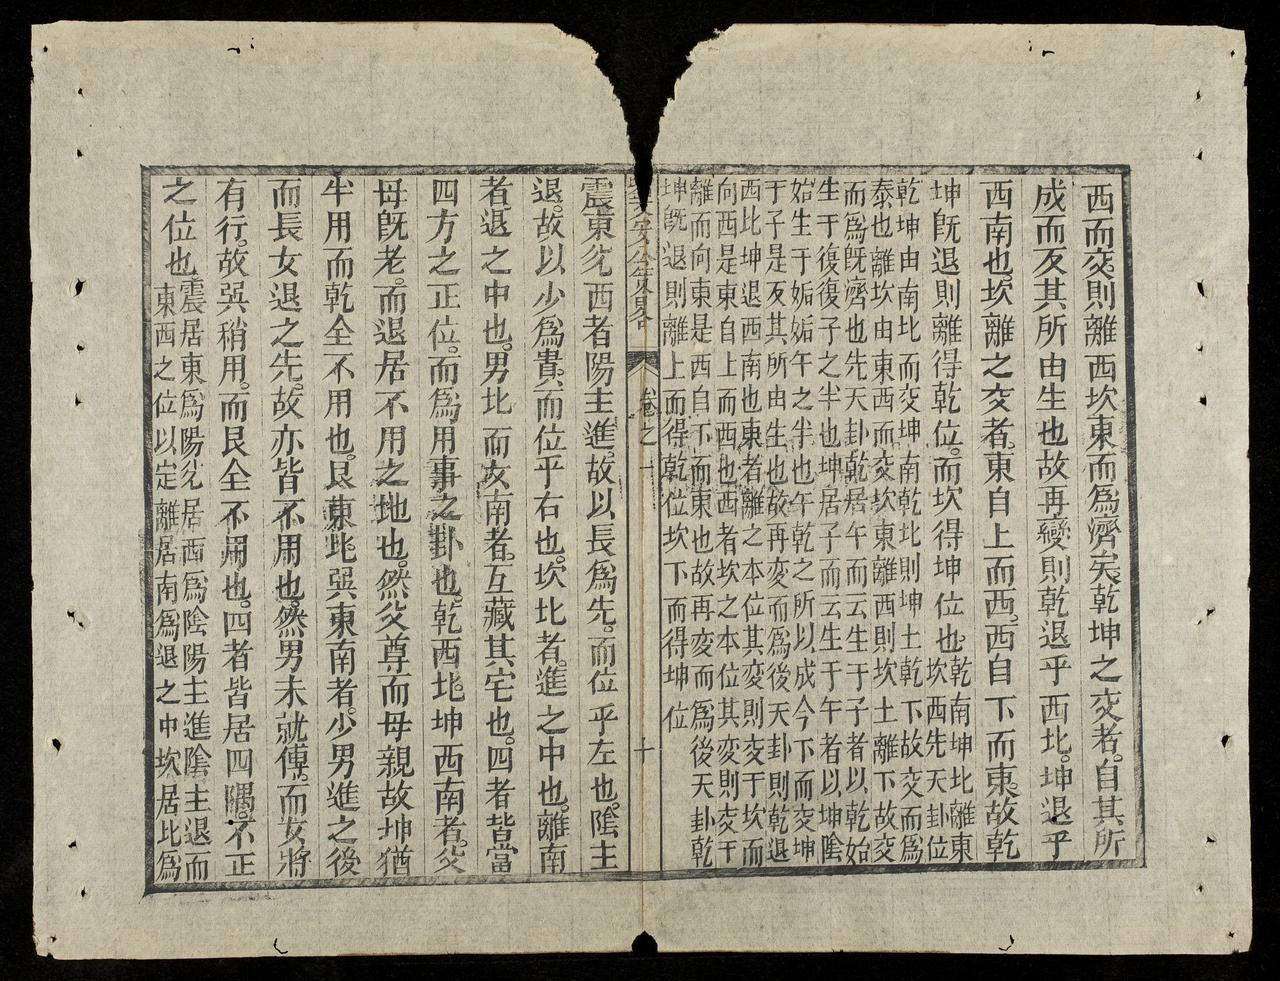 西而交。則離西坎東而爲濟矣。乾坤之交者。自其所
成而反其所由生也。故再變則乾退乎西北。坤退乎
西南也。坎離之交者。東自上而西。西自下而東。故乾
坤旣退則離得乾位。而坎得坤位也。乾南坤北離東
坎西先天卦位
乾坤由南北而交坤南乾北則坤上乾下故交而爲
泰也離坎由東西而交坎東離西則坎上離下故交
而爲旣濟也先天卦乾居午而云生于子者以乾始
生于復復子之半也坤居子而云生于午者以坤陰
始生于姤姤午之半也午乾之所以成今下而交坤
于子是反其所由生也故再変而爲後天卦則乾退
西北坤退西南也東者離之本位其変則交于坎而
向西是東自上而西也西者坎之本位其変則交于
離而向東是西自下而東也故再変而爲後天卦乾
坤旣退則離上而得乾位坎下而得坤位
卷之一
十
震東兊西者陽主進。故以長爲先。而位乎左也。陰主
退。故以少爲貴。而位乎右也。坎北者。進之中也。離南
者退之中也。男北而女南者。互藏其宅也。四者皆當
四方之正位。而爲用事之卦也。乾西北。坤西南者。父
母旣老。而退居不用之地也。然父尊而母親故坤猶
半用而乾全不用也。艮東北巽東南者。少男進之後
而長女退之先。故亦皆不用也。然男未就傅。而女將
有行。故巽稍用。而艮全不用也。四者皆居四隅。不正
之位也。震居東爲陽兊居西爲陰陽主進陰主退而
東西之位以定離居南爲退之中坎居北爲